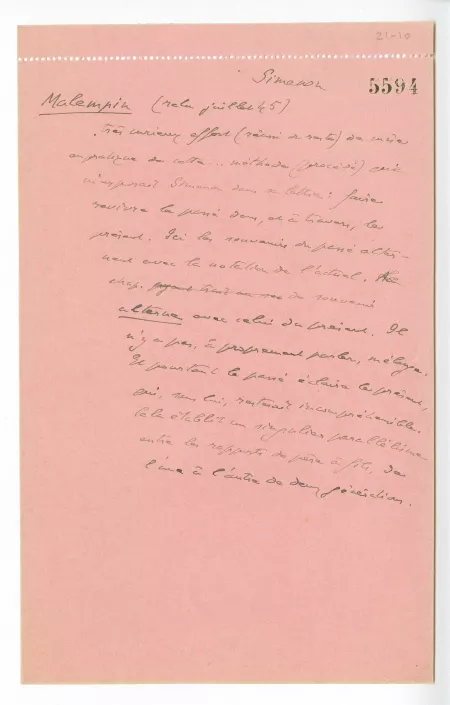 21-10
Simenon
5594
Malempin (relu juillet 45)
Très curieux effort (réussi du reste) de mise
en pratique de cette... méthode (procédé) que
m'exposait Simenon dans sa lettre: faire
revivre le passé dans, et à travers, le
présent. Ici les souvenirs du passé alter-
nent avec la notation de l'actuel.
chap. du souvenir
alterne avec celui du présent. Il
n'y a pas, à proprement parler, mélange.
Et pourtant le passé éclaire le présent,
qui, sans lui, resterait incompréhensible.
Cela établit un singulier parallélisme
entre les rapports de père à fils, de
l'une à l'autre de deux générations.